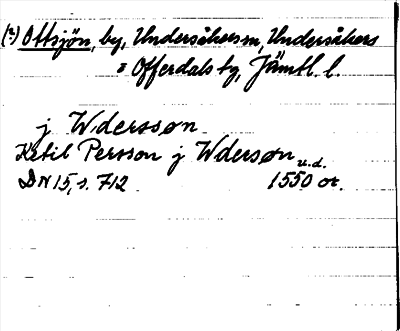 (?) Ottsjön, by, Undersåkers sn, Undersåkers
o Offerdals tg, Jämtl. l.
j Wdersson
Ketil Persson j Wdersøn u.d.
DN 15, s. 712 1550 or.